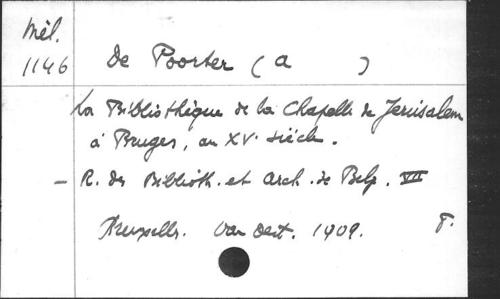 Mél.
1146
De Poorter (A )
La Bibliothèque de la Chapelle de Jerusalem
à Bruges, au XVe siècle.
- R. des Biblioth. et Arch. de Belg. VII
Bruxelles. Van Oest. 1909. 8.